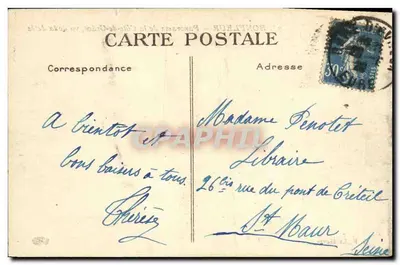 CARTE POSTALE
Correspondance
Adresse
A bientot et
bons baisers à tous.
Thérèse
Madame Penotet
Libraire
26 bis rue du pont de Créteil
St Maur
Seine